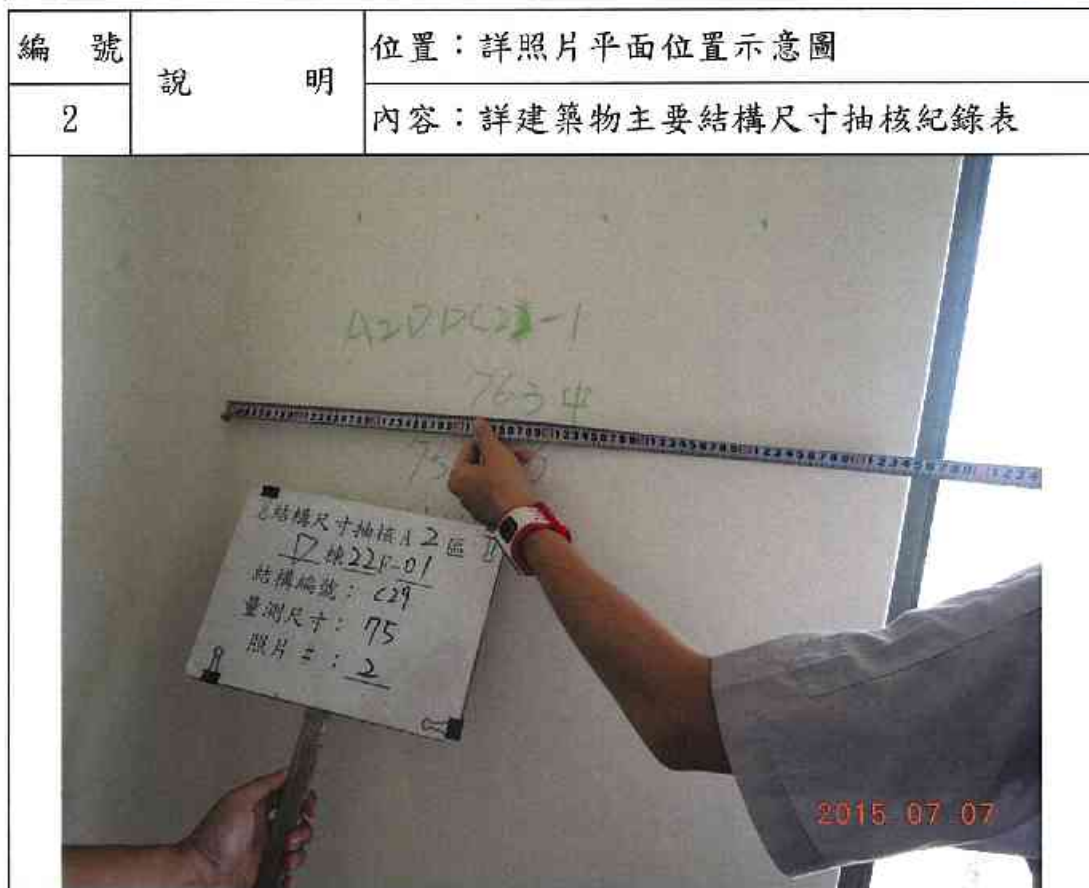 編 號
說 明
位置：詳照片平面位置示意圖
2
內容：詳建築物主要結構尺寸抽核紀錄表
結構尺寸抽核A2區
D棟22F-01
結構編號：C29
量測尺寸：75
照片#：2
2015 07 07